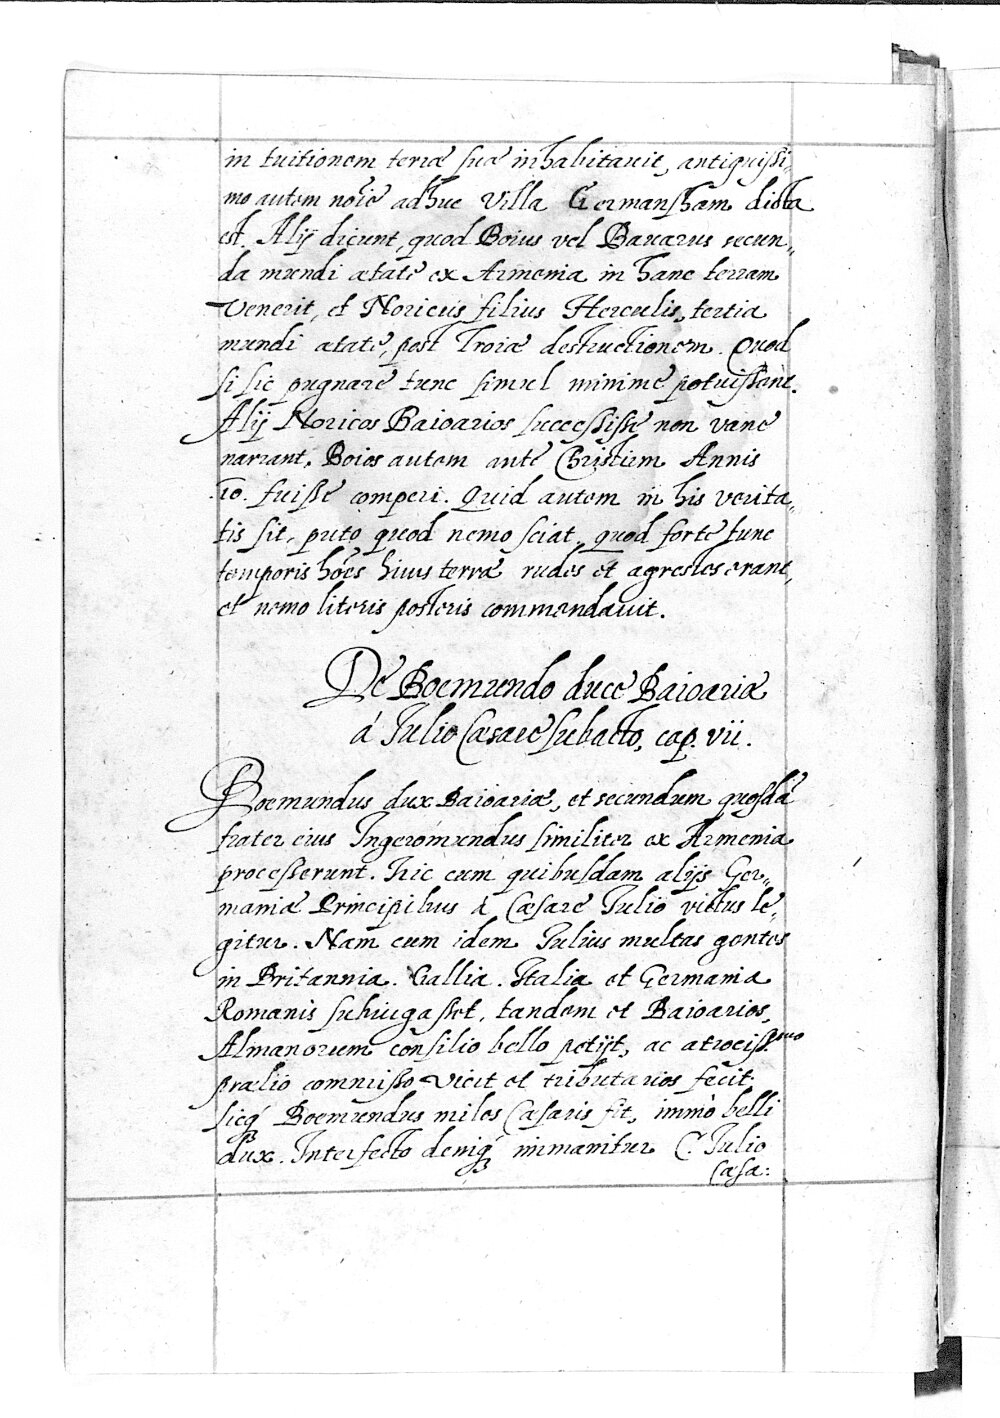 in tuitionem terræ suæ inhabitauit, antiquissi-
mo autem noīe adhuc Villa Germansham dicta
est. Alij dicunt, quod Boius vel Bauarus secun„
da mundi ætate ex Armenia in hanc terram
Venerit, et Noricus filius Herculis, tertia
mundi ætate, post Troiæ destructionem. Quod
si sic pugnare tunc simul minime potuissent.
Alij Noricos Baioarios successisse non vane
narrant, Boios autem ante Christum Annis
10. fuisse comperi. Quid autem in his verita„
tis sit, puto quod nemo sciat, quod forte tunc
temporis hoēs huius terræ rudes et agrestes erant,
et nemo literis posteris commendauit.
De Boemundo duce Baioariæ
á Julio Cæsare subacto, cap. vii.
Boemundus dux Baioariæ, et secundum quosdā
frater eius Ingeromundus similiter ex Armenia
processerunt. Hic cum quibusdam alijs Ger„
maniæ Principibus á Cæsare Julio victus le„
gitur. Nam cum idem Julius multas gentes
in Britannia. Gallia. Italia et Germania
Romanis subiugasset, tandem et Baioarios,
Almanorum consilio bello petijt, ac atrociss.mo
prælio commisso vicit et tributarios fecit.
sicq́ Boemundus miles Cæsaris fit, immò belli
dux. Interfecto deniq́ immanitur C. Julio
Cæsa: